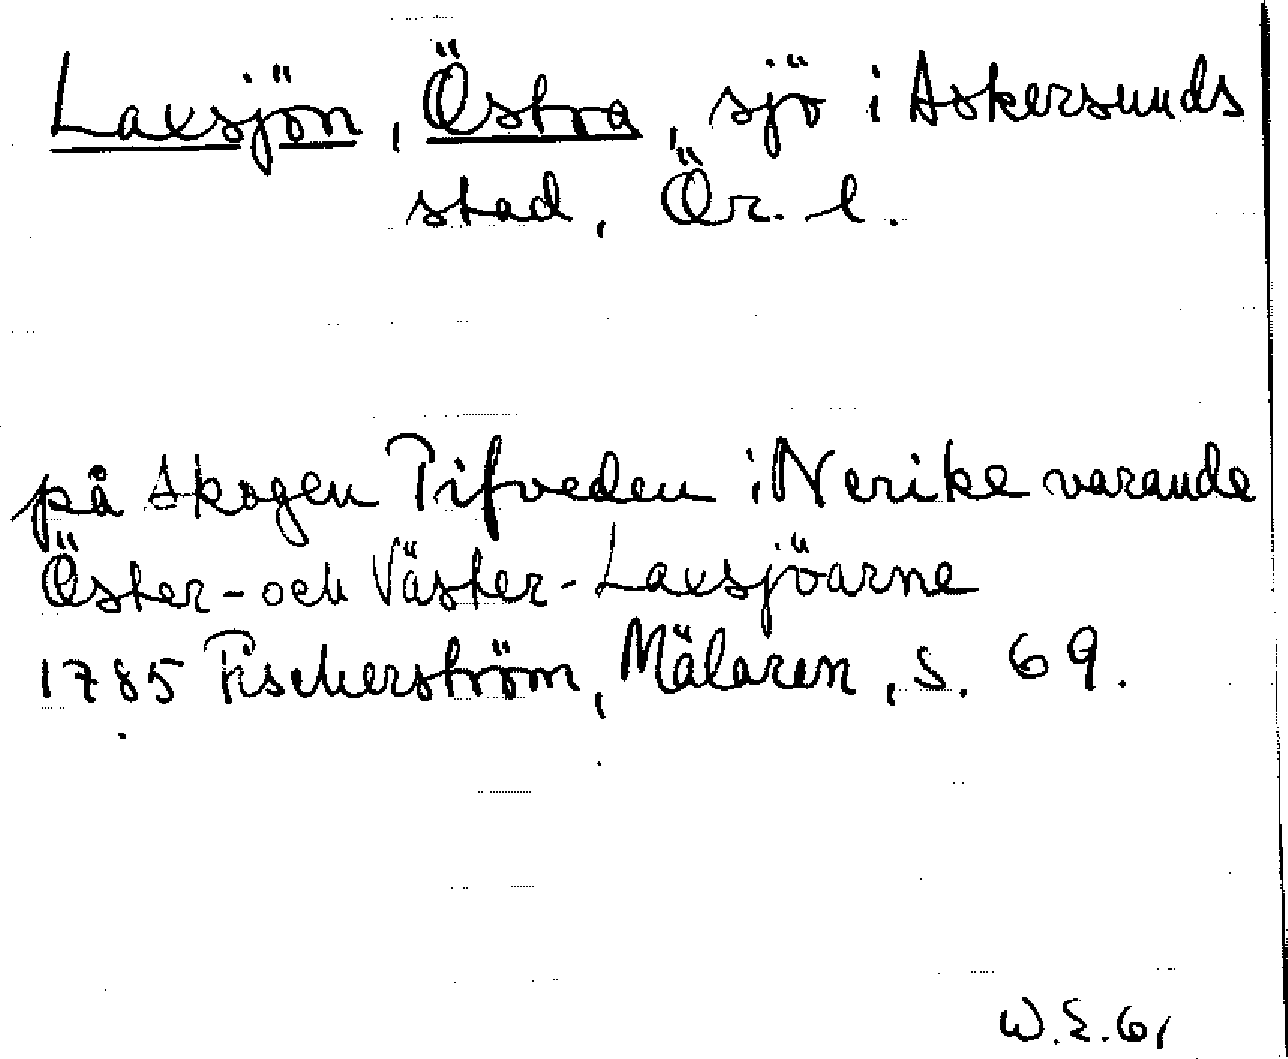 Laxsjön, Östra, sjö i Askersunds
stad, Ör. l.
på skogen Tifveden i Nerike varande
Öster- och Väster-Laxsjöarne
1785 Fischerström, Mälaren, S. 69.
W.E. 61